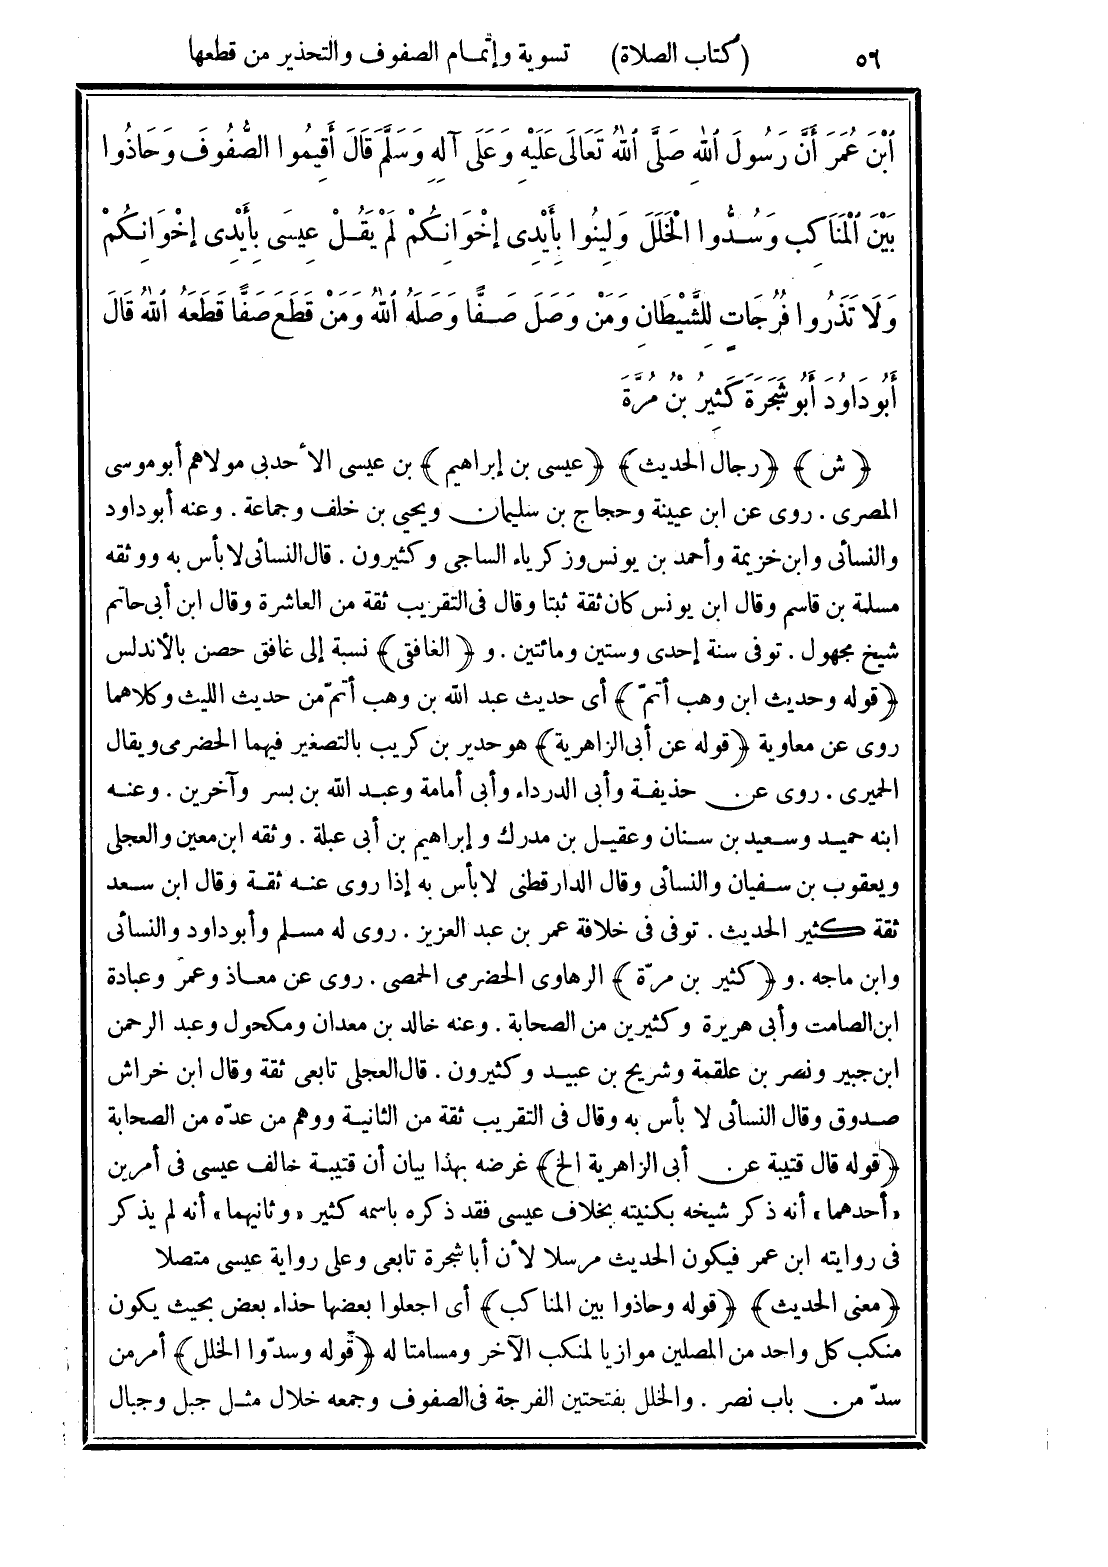 ٥٦ (كتاب الصلاة) تسوية وإتمام الصفوف والتحذير من قطعها
ٱبْنَ عُمَرَ أَنَّ رَسُولَ ٱللهِ صَلَّى ٱللهُ تَعَالَى عَلَيْهِ وَعَلَى آلِهِ وَسَلَّمَ قَالَ أَقِيمُوا الصُّفُوفَ وَحَاذُوا
بَيْنَ ٱلْمَنَاكِبِ وَسُدُّوا الْخَلَلَ وَلِينُوا بِأَيْدِى إِخْوَانِكُمْ لَمْ يَقُلْ عِيسَى بِأَيْدِى إِخْوَانِكُمْ
وَلَا تَذَرُوا فُرُجَاتٍ لِلشَّيْطَانِ وَمَنْ وَصَلَ صَفًّا وَصَلَهُ ٱللهُ وَمَنْ قَطَعَ صَفًّا قَطَعَهُ ٱللهُ قَالَ
أَبُو دَاوُدَ أَبُو شَجَرَةَ كَثِيرُ بْنُ مُرَّةَ
﴿ش﴾ ﴿رجال الحديث﴾ ﴿عيسى بن إبراهيم﴾ بن عيسى الأحدبى مولاهم أبوموسى
المصرى . روى عن ابن عيينة وحجاج بن سليمان ويحيى بن خلف وجماعة . وعنه أبوداود
والنسائى وابن خزيمة وأحمد بن يونس وزكرياء الساجى وكثيرون . قال النسائى لابأس به ووثقه
مسلمة بن قاسم وقال ابن يونس كان ثقة ثبتا وقال فى التقريب ثقة من العاشرة وقال ابن أبى حاتم
شيخ مجهول . توفى سنة إحدى وستين ومائتين . و ﴿الغافقى﴾ نسبة إلى غافق حصن بالأندلس
﴿قوله وحديث ابن وهب أتمّ﴾ أى حديث عبد الله بن وهب أتمّ من حديث الليث وكلاهما
روى عن معاوية ﴿قوله عن أبى الزاهرية﴾ هو حدير بن كريب بالتصغير فيهما الحضرمى ويقال
الحميرى . روى عن حذيفة وأبى الدرداء وأبى أمامة وعبد الله بن بسر وآخرين . وعنه
ابنه حميد وسعيد بن سنان وعقيل بن مدرك وإبراهيم بن أبى عبلة . وثقه ابن معين والعجلى
ويعقوب بن سفيان والنسائى وقال الدارقطنى لابأس به إذا روى عنه ثقة وقال ابن سعد
ثقة كثير الحديث . توفى فى خلافة عمر بن عبد العزيز . روى له مسلم وأبوداود والنسائى
وابن ماجه . و ﴿كثير بن مرّة﴾ الرهاوى الحضرمى الحمصى . روى عن معاذ وعمر وعبادة
ابن الصامت وأبى هريرة وكثيرين من الصحابة . وعنه خالد بن معدان ومكحول وعبد الرحمن
ابن جبير ونصر بن علقمة وشريح بن عبيد وكثيرون . قال العجلى تابعى ثقة وقال ابن خراش
صدوق وقال النسائى لا بأس به وقال فى التقريب ثقة من الثانية ووهم من عدّه من الصحابة
﴿قوله قال قتيبة عن أبى الزاهرية الخ﴾ غرضه بهذا بيان أن قتيبة خالف عيسى فى أمرين
«أحدهما» أنه ذكر شيخه بكنيته بخلاف عيسى فقد ذكره باسمه كثير «وثانيهما» أنه لم يذكر
فى روايته ابن عمر فيكون الحديث مرسلا لأن أبا شجرة تابعى وعلى رواية عيسى متصلا
﴿معنى الحديث﴾ ﴿قوله وحاذوا بين المناكب﴾ أى اجعلوا بعضها حذاء بعض بحيث يكون
منكب كل واحد من المصلين موازيا لمنكب الآخر ومسامتا له ﴿قوله وسدّوا الخلل﴾ أمر من
سدّ من باب نصر . والخلل بفتحتين الفرجة فى الصفوف وجمعه خلال مثل جبل وجبال